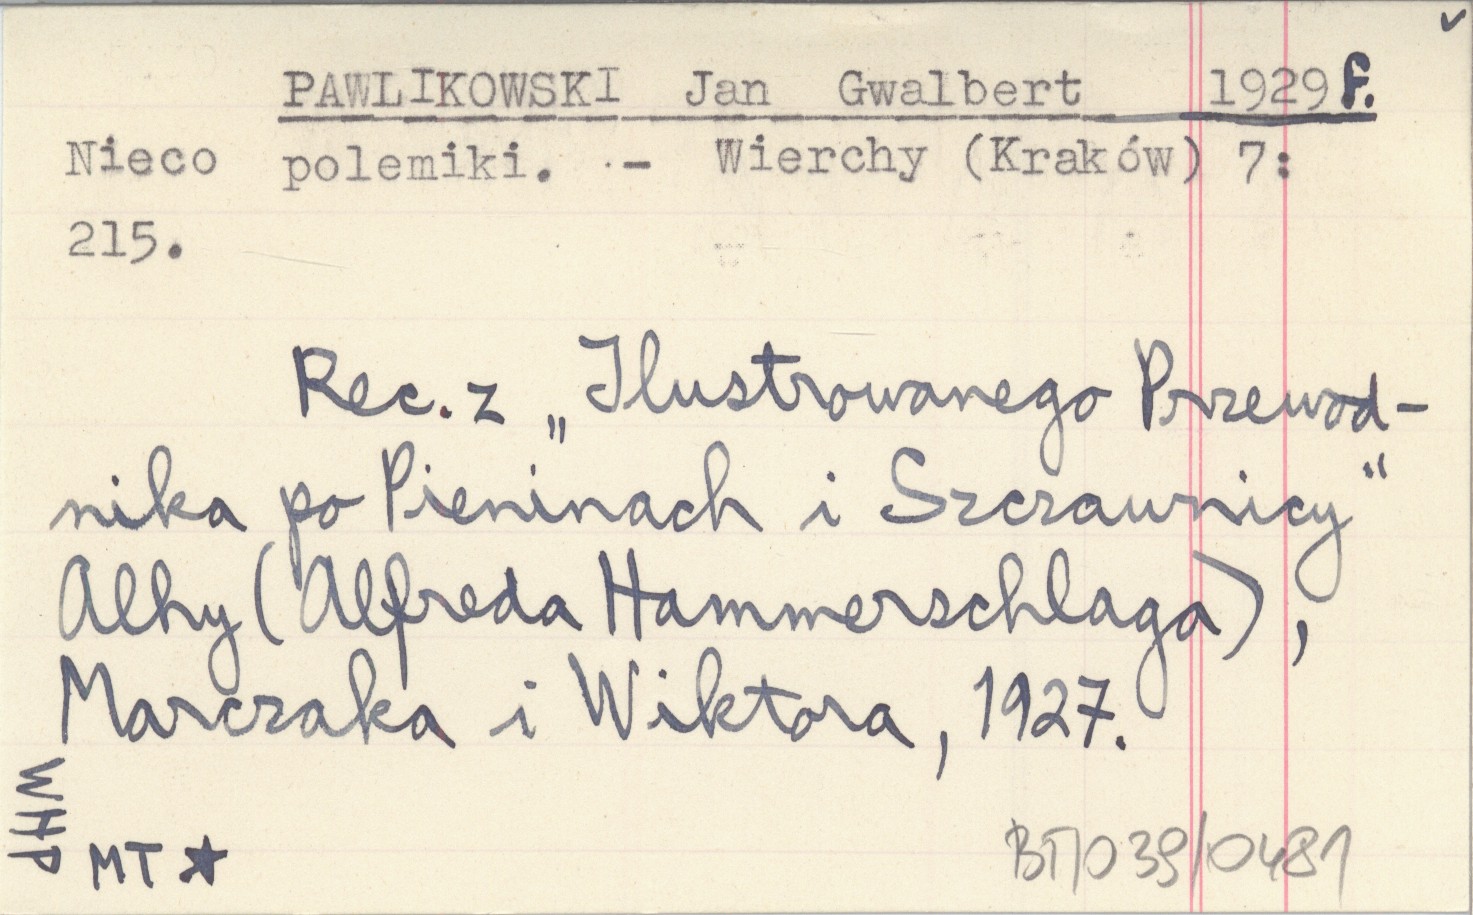 PAWLIKOWSKI Jan Gwalbert 1929 f.
Nieco polemiki. - Wierchy (Kraków) 7:
215.
Rec. z „Ilustrowanego Przewod-
nika po Pieninach i Szczawnicy"
Alhy (Alfreda Hammerschlaga),
Marczaka i Wiktora, 1927.
WHP
MT ★
39/0481